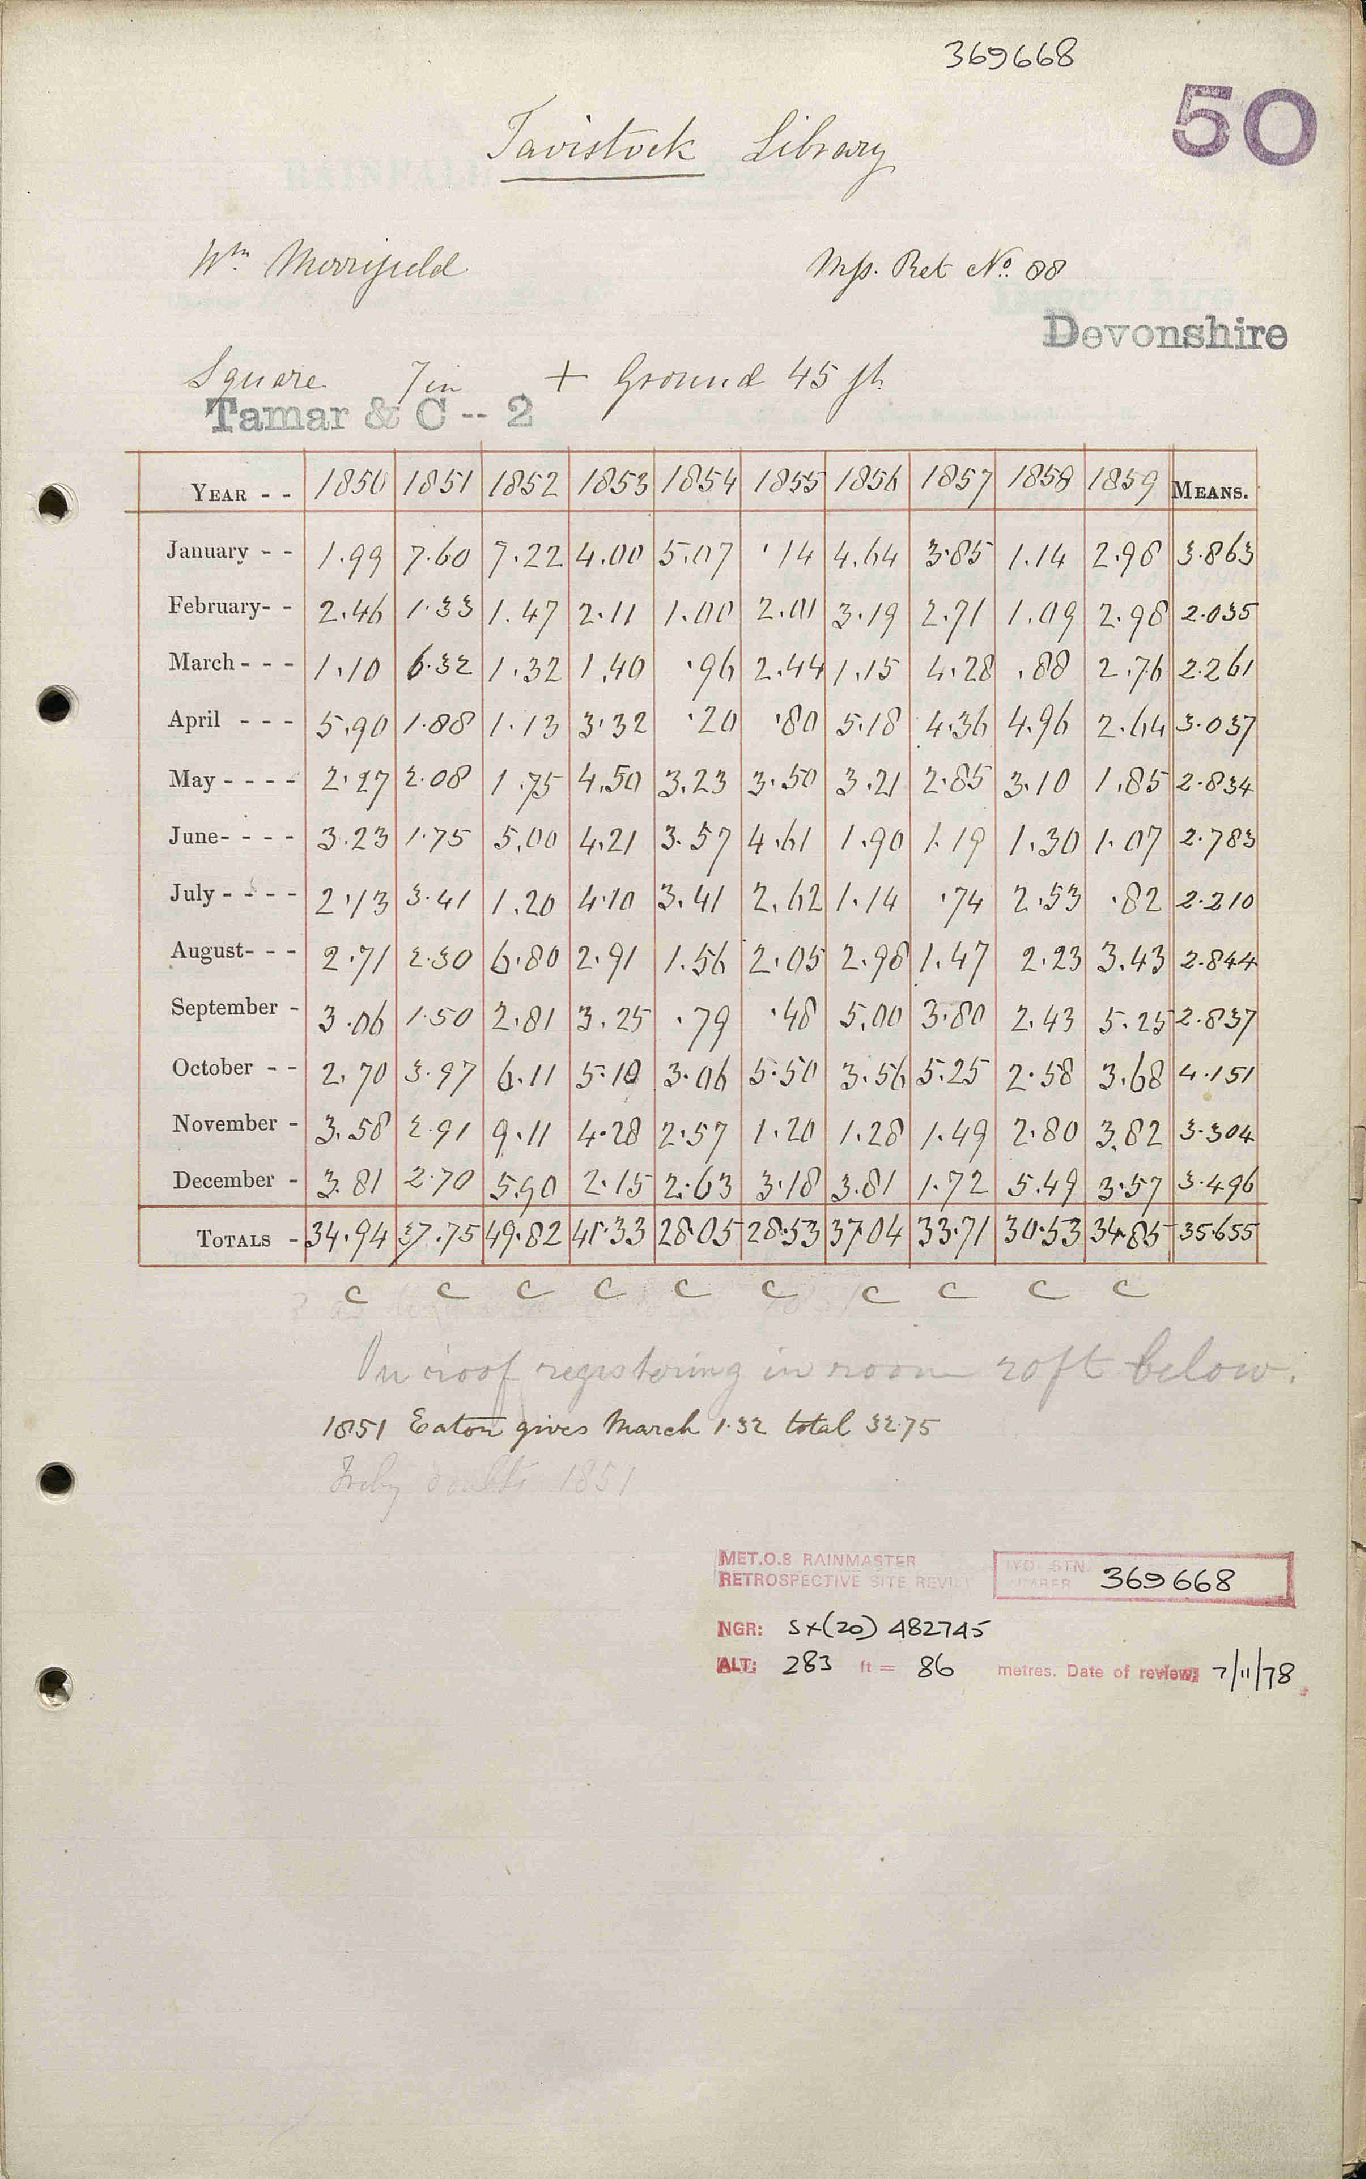 369668
50
Tavistock Library
Wm Merrifield Mss. Ret No. 88
Devonshire
Square 7in + Ground 45 ft
Tamar & C -- 2
YEAR - - 1850 1851 1852 1853 1854 1855 1856 1857 1858 1859 MEANS.
January - - 1.99 7.60 7.22 4.00 5.07 .14 4.64 3.85 1.14 2.98 3.863
February- - 2.46 1.33 1.47 2.11 1.00 2.01 3.19 2.71 1.09 2.98 2.035
March - - - 1.10 6.32 1.32 1.40 .96 2.44 1.15 4.28 .88 2.76 2.261
April - - - 5.90 1.88 1.13 3.32 .20 .80 5.18 4.36 4.96 2.64 3.037
May - - - - 2.27 2.08 1.75 4.50 3.23 3.50 3.21 2.85 3.10 1.85 2.834
June- - - - 3.23 1.75 5.00 4.21 3.57 4.61 1.90 1.19 1.30 1.07 2.783
July - - - - 2.13 3.41 1.20 4.10 3.41 2.62 1.14 .74 2.53 .82 2.210
August- - - 2.71 2.30 6.80 2.91 1.56 2.05 2.98 1.47 2.23 3.43 2.844
September - 3.06 1.50 2.81 3.25 .79 .48 5.00 3.80 2.43 5.25 2.837
October - - 2.70 3.97 6.11 5.10 3.06 5.50 3.56 5.25 2.58 3.68 4.151
November - 3.58 2.91 9.11 4.28 2.57 1.20 1.28 1.49 2.80 3.82 3.304
December - 3.81 2.70 5.90 2.15 2.63 3.18 3.81 1.72 5.49 3.57 3.496
TOTALS - 34.94 37.75 49.82 41.33 28.05 28.53 37.04 33.71 30.53 34.85 35.655
c c c c c c c c c c
On roof registering in room 20ft below.
1851 Eaton gives March 1.32 total 32.75
doubts 1851
MET.O.8 RAINMASTER
RETROSPECTIVE SITE REVIEW
STN. NUMBER 369668
NGR: SX(20) 482745
ALT: 283 ft = 86 metres. Date of review: 7/11/78